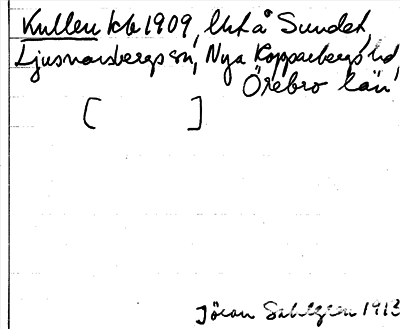 Kullen kb 1909, Utå Sundet,
Ljusnarsbergs sn, Nya Kopparbergs hd,
Örebro län
[ ]
Jöran Sahlgren 1913